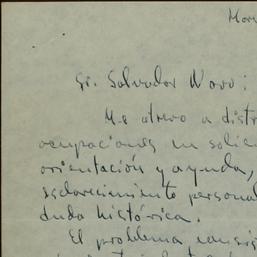 Sr. Salvador Novo:
Me atrevo a distr
ocupaciones un solici
orientación y ayuda,
esclarecimiento personal
duda histórica.
El problema consis